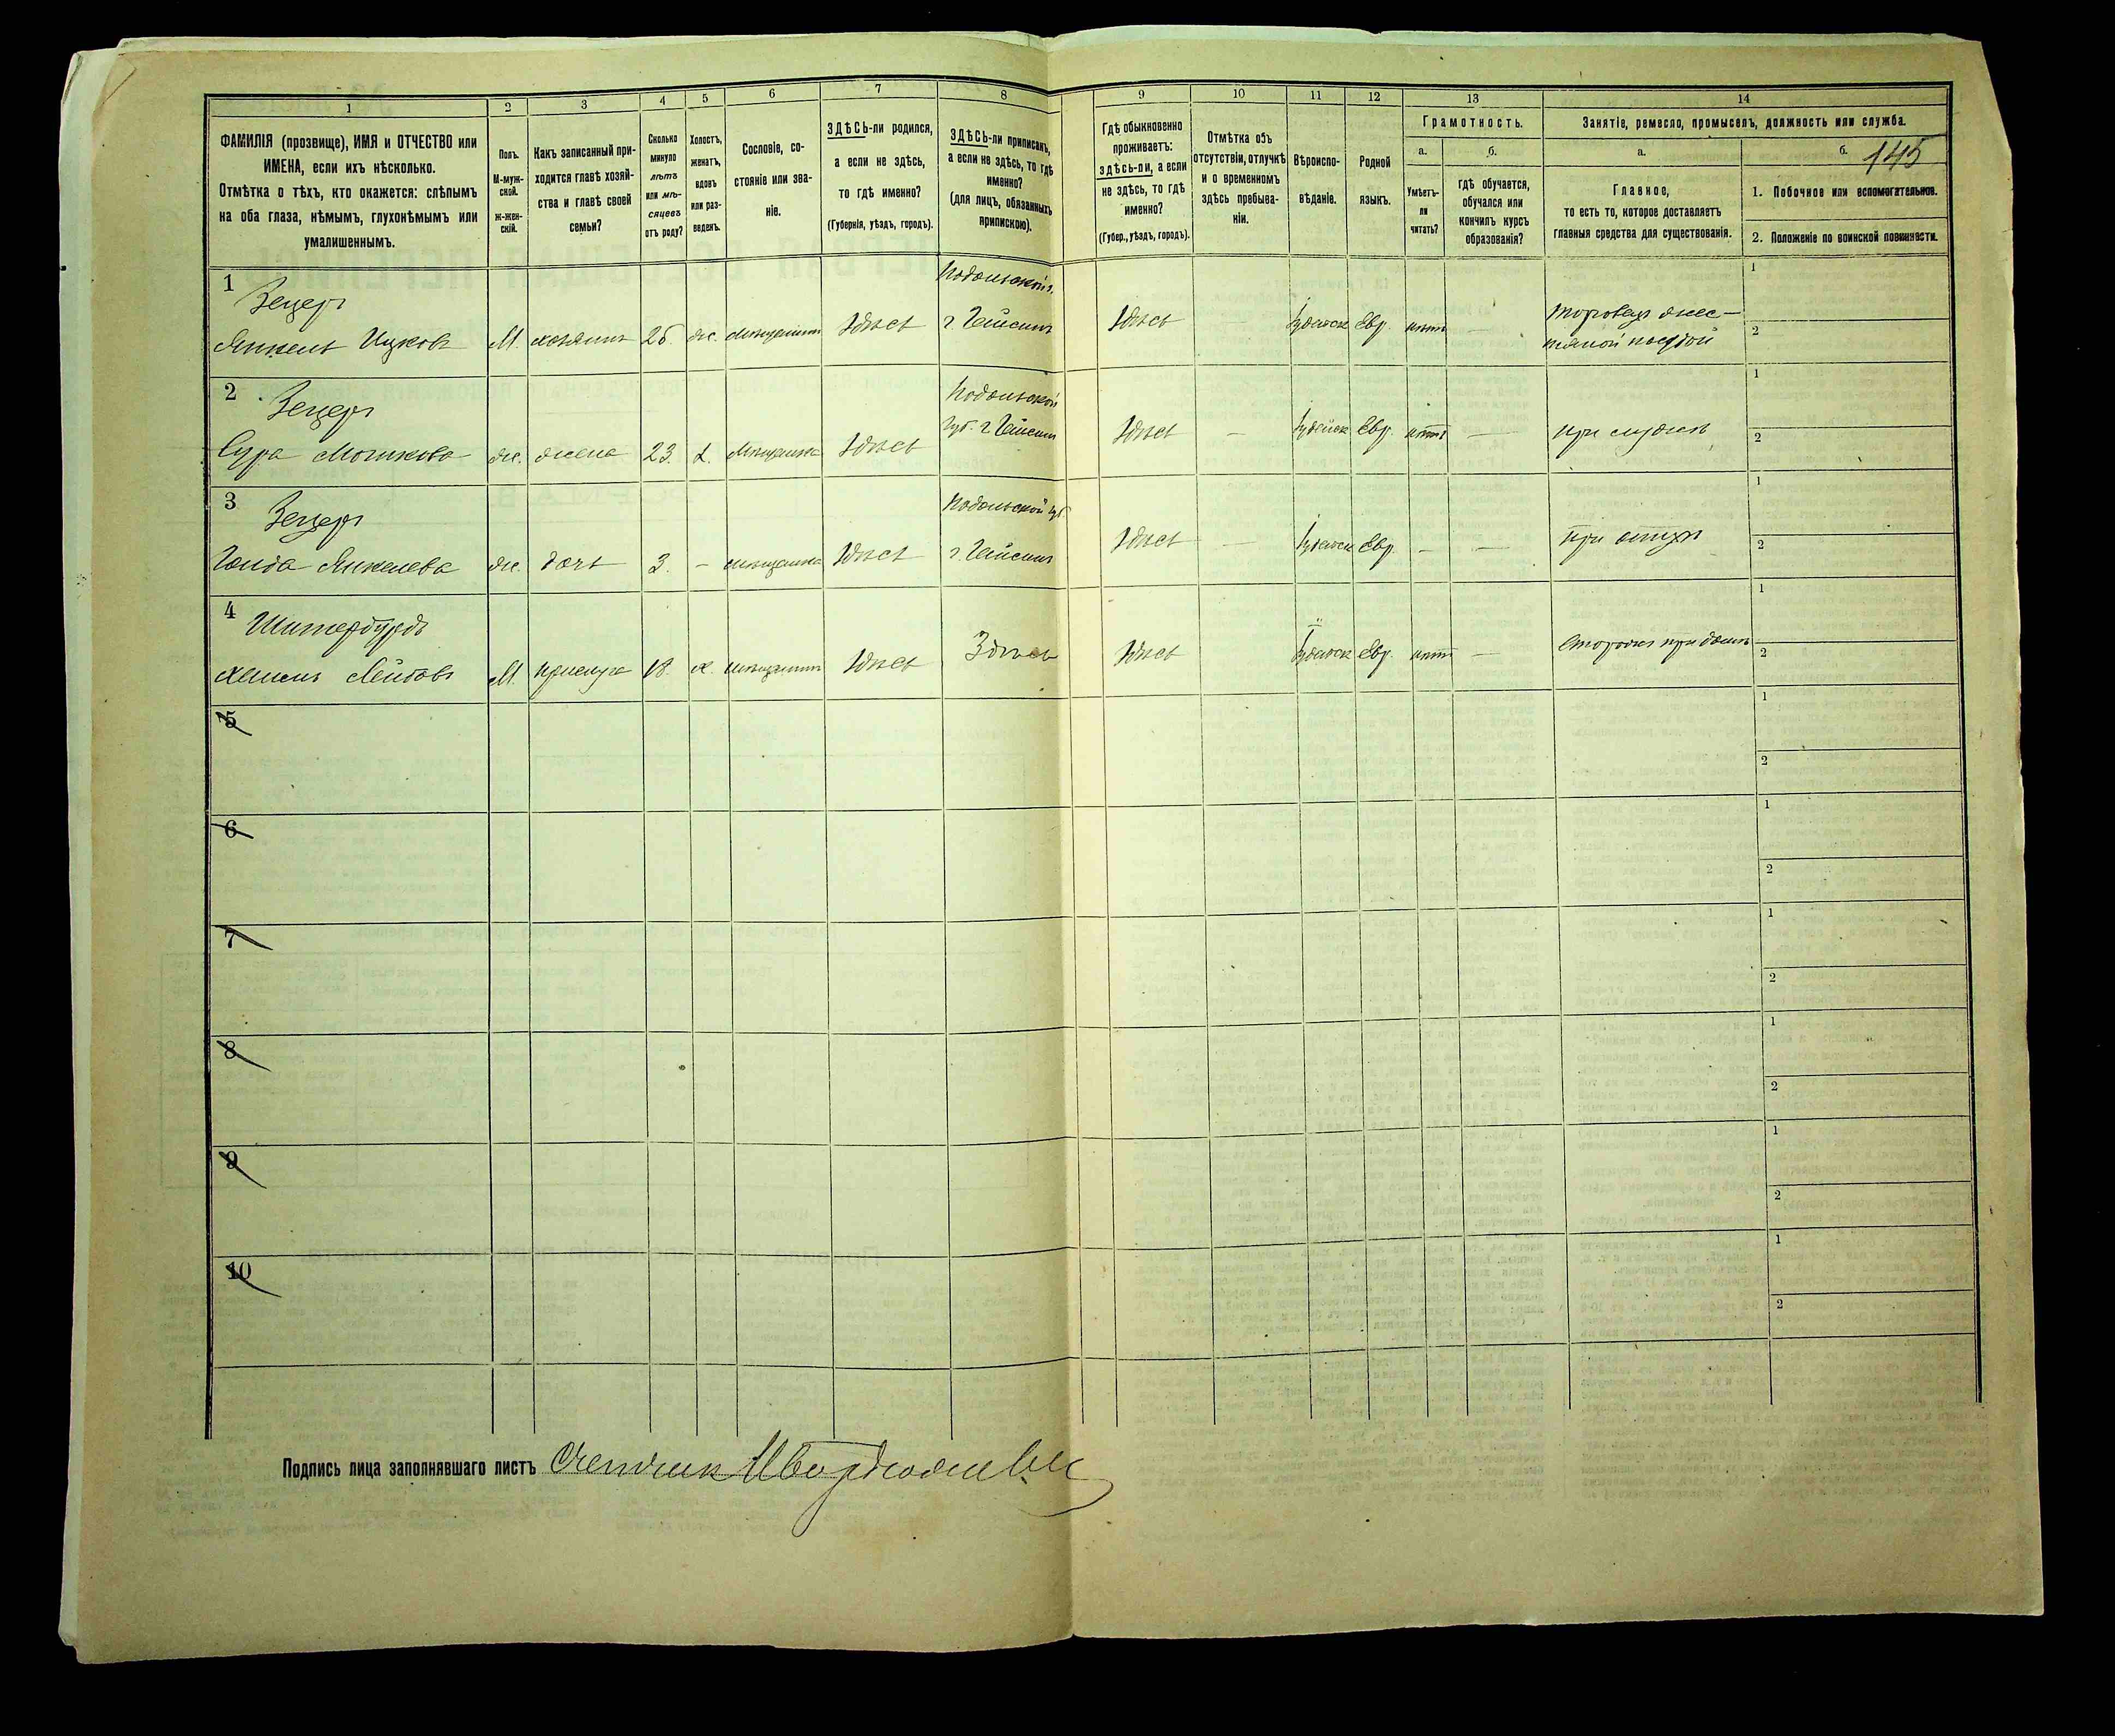 1 2 3 4 5 6 7 8 9 10 11 12 13 14
ФАМИЛІЯ (прозвище), ИМЯ и ОТЧЕСТВО или
ИМЕНА, если ихъ нѣсколько.
Отмѣтка о тѣхъ, кто окажется: слѣпымъ
на оба глаза, нѣмымъ, глухонѣмымъ или
умалишеннымъ.
Полъ.
М-муж-
ской.
Ж-жен-
скій.
Какъ записанный при-
ходится главѣ хозяй-
ства и главѣ своей
семьи?
Сколько
минуло
лѣтъ
или мѣ-
сяцевъ
отъ роду?
Холостъ,
женатъ,
вдовъ
или раз-
веденъ.
Сословіе, со-
стояніе или зва-
ніе.
ЗДѢСЬ-ли родился,
а если не здѣсь,
то гдѣ именно?
(Губернія, уѣздъ, городъ).
ЗДѢСЬ-ли приписанъ,
а если не здѣсь, то гдѣ
именно?
(для лицъ, обязанныхъ
припискою).
Гдѣ обыкновенно
проживаетъ:
здѣсь-ли, а если
не здѣсь, то гдѣ
именно?
(Губер., уѣздъ, городъ).
Отмѣтка объ
отсутствіи, отлучкѣ
и о временномъ
здѣсь пребыва-
ніи.
Вѣроиспо-
вѣданіе.
Родной
языкъ.
Грамотность.
а.
Умѣетъ-
ли
читать?
б.
Гдѣ обучается,
обучался или
кончилъ курсъ
образованія?
Занятіе, ремесло, промыселъ, должность или служба.
а.
Главное,
то есть то, которое доставляетъ
главныя средства для существованія.
б. 145
1. Побочное или вспомогательное.
2. Положеніе по воинской повинности.
1 Зецеръ Подольской г. 1
Янкель Ицковъ М. хозяинъ 25. ж. мѣщанинъ Здѣсь г. Гайсинъ Здѣсь — Іудейск Евр. нѣтъ — торговецъ жес-
тяной посудой 2
2 Зецеръ Подольской 1
Сура Мошкова ж. жена 23. мѣщанка Здѣсь Губ. г. Гайсинъ Здѣсь — Іудейск Евр. нѣтъ — при мужѣ 2
3 Зецеръ Подольской губ 1
Голда Янкелева ж. дочь 3. — мѣщанка Здѣсь г. Гайсинъ Здѣсь — Іудейск Евр. — — при отцѣ 2
4 1
Лейбовъ М. прислуга 18. х. мѣщанинъ Здѣсь Здѣсь Здѣсь Іудейск Евр. нѣтъ — Сторожъ при домѣ 2
5 1
2
6 1
2
7 1
2
8 1
2
9 1
2
10 1
2
Подпись лица заполнявшаго листъ Счетчик